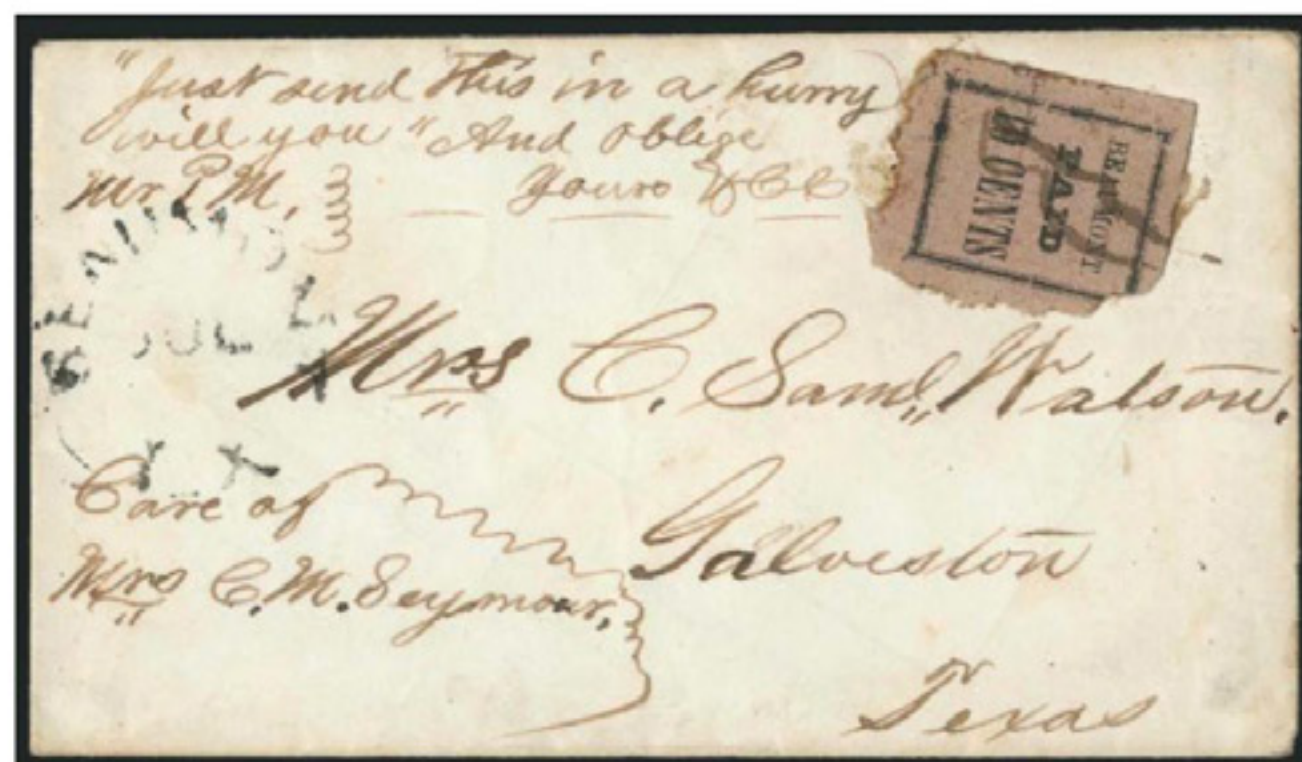 "Just send this in a hurry
will you" And oblige
Mr P M, Yours &CC
BEAUMONT
PAID
10 CENTS
JUL
Mrs C. Saml Watson.
Care of
Mrs C. M. Seymour,
Galveston
Texas